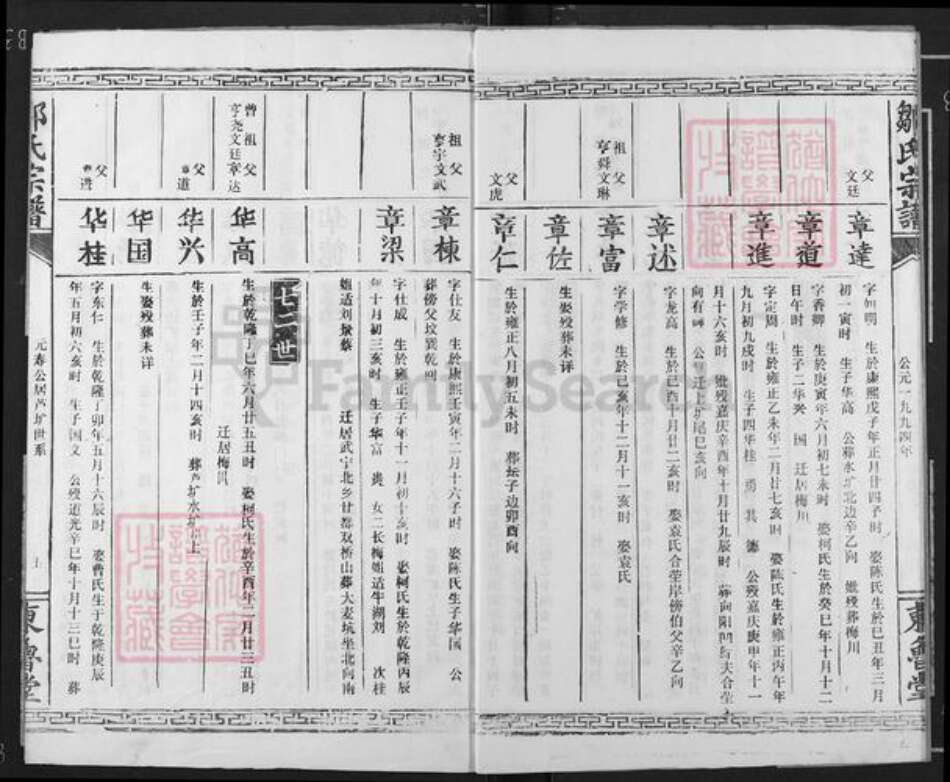 鄒氏宗譜
公元一九九四年
東魯堂
父文廷
章達
字如明 生於康熙戊子年正月廿四子时 娶陈氏生於己丑年三月
初一寅时 生子华高 公葬水圹北边辛乙向 娥殁葬梅川
章道
字香卿 生於庚寅年六月初七未时 娶柯氏生於癸巳年十月十二
日午时 生子二华兴 国 迁居梅川
章進
字定周 生於雍正乙未年二月廿七亥时 娶陈氏生於雍正丙午年
九月初九戌时 生子四华桂 勇 其 德 公殁嘉庆庚申年十一
月十六亥时 娥殁嘉庆辛酉年十月廿九辰时 葬向阳 与夫合茔
向有碑 公 迁上圹尾巳亥向
章述
字龙高 生於己酉十月廿二亥时 娶袁氏合茔岸傍伯父辛乙向
祖亨舜 父文琳
章富
字学修 生於己亥年十二月十一亥时 娶袁氏
章佐
生娶殁葬未详
父文虎
章仁
生於雍正八月初五未时 葬坛子边卯酉向
祖亨宇 父文武
章棟
字仕友 生於康熙壬寅年二月十六子时 娶陈氏生子华国 公
葬傍父坟巽乾向
章梁
字仕成 生於雍正壬子年十一月初十亥时 娶柯氏生於乾隆丙辰
年十月初三亥时 生子华富 贵 女二长梅姐适牛湖刘 次桂
姐适刘景蔡 迁居武宁北乡廿都双桥山葬大麦坑坐北向南
七二世
曾祖亨尧 祖文廷 父章达
华高
生於乾隆丁巳年六月廿五丑时 娶柯氏生於辛酉年二月廿三丑时
迁居梅川
父章道
华兴
生於壬子年二月十四亥时 葬芦圹水圹上
华国
生娶殁葬未详
父章进
华桂
字东仁 生於乾隆丁卯年五月十六辰时 娶曹氏生于乾隆庚辰
年五月初六亥时 生子国文 公殁道光辛巳年十月十三巳时 葬
氏宗譜
元寿公居芦圹世系
東魯堂
FamilySearch